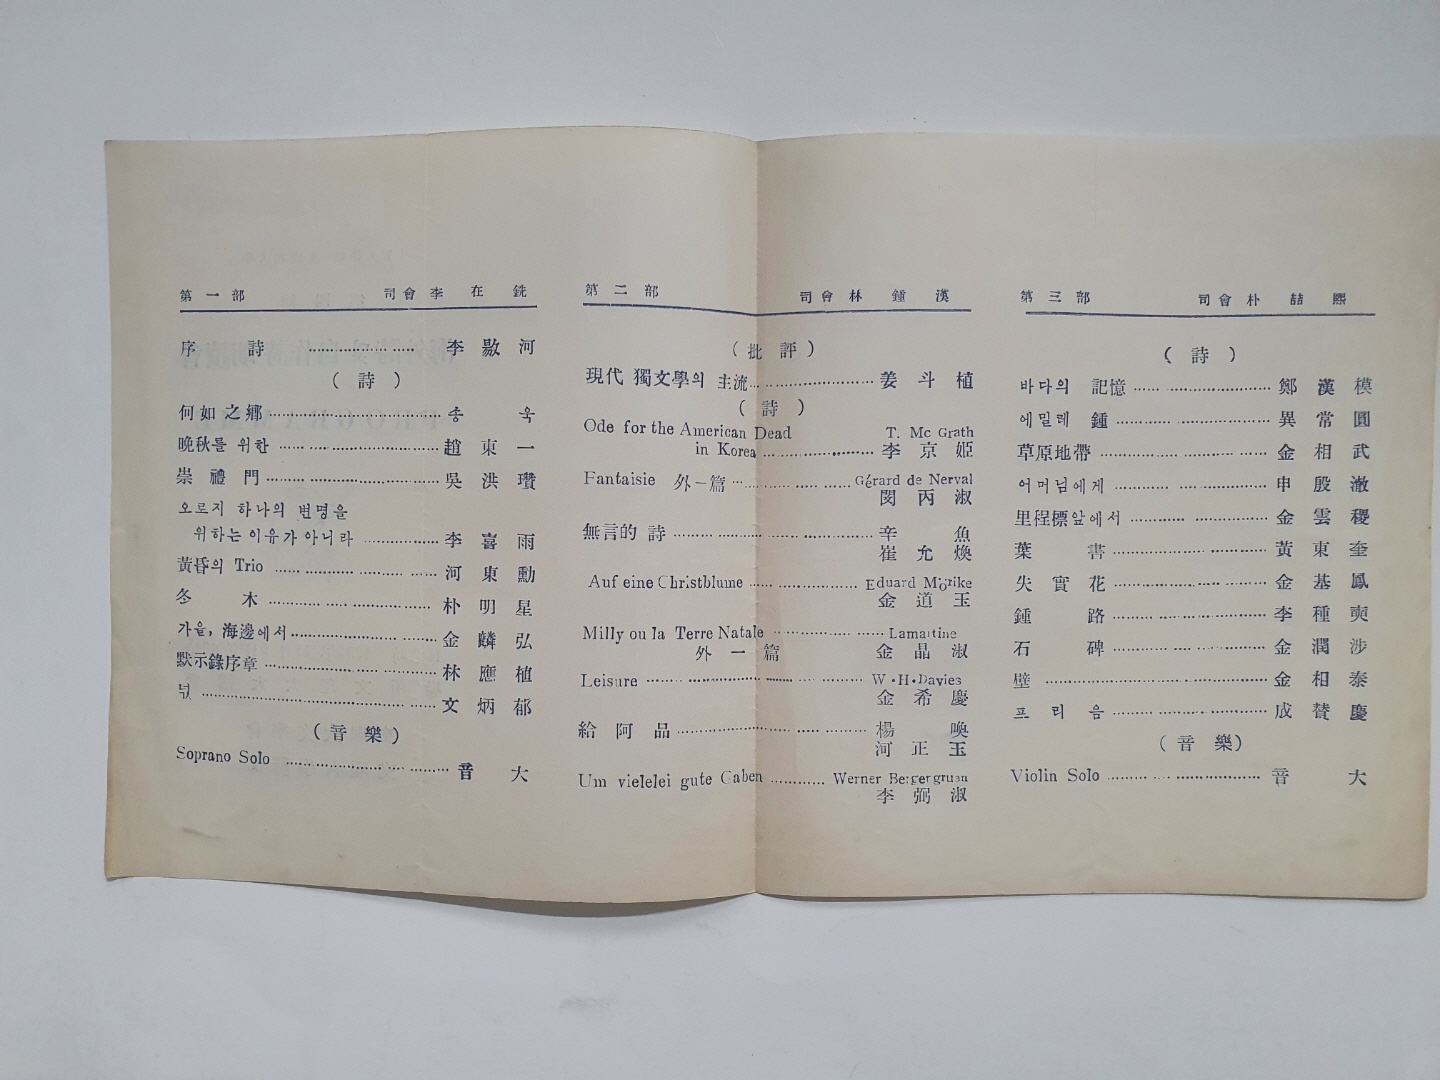 第一部 司會 李在銑
序詩 ……………… 李敭河
(詩)
何如之鄉 ……………… 송욱
晩秋를 위한 ……………… 趙東一
崇禮門 ……………… 吳洪瓚
오르지 하나의 변명을
위하는 이유가 아니라 ……………… 李喜雨
黃昏의 Trio ……………… 河東勳
冬木 ……………… 朴明星
가을, 海邊에서 ……………… 金麟弘
默示錄序章 ……………… 林應植
넋 ……………… 文炳郁
(音樂)
Soprano Solo ……………… 音大
第二部 司會 林鍾漢
(批評)
現代 獨文學의 主流 ……………… 姜斗植
(詩)
Ode for the American Dead T. Mc Grath
in Korea ……………… 李京姬
Fantaisie 外一篇 ……………… Gérard de Nerval
閔丙淑
無言的 詩 ……………… 辛魚
崔允煥
Auf eine Christblume ……………… Eduard Mörike
金道玉
Milly ou la Terre Natale ……………… Lamartine
外一篇 金晶淑
Leisure ……………… W.H.Davies
金希慶
給阿品 ……………… 楊喚
河正玉
Um vielelei gute Gaben ……………… Werner Bergergruan
李弼淑
第三部 司會 朴喆熙
(詩)
바다의 記憶 ……………… 鄭漢模
에밀레 鍾 ……………… 異常圓
草原地帶 ……………… 金相武
어머님에게 ……………… 申殷澈
里程標앞에서 ……………… 金雲稷
葉書 ……………… 黃東奎
失實花 ……………… 金基鳳
鍾路 ……………… 李種奭
石碑 ……………… 金潤涉
壁 ……………… 金相泰
프리음 ……………… 成贊慶
(音樂)
Violin Solo ……………… 音大